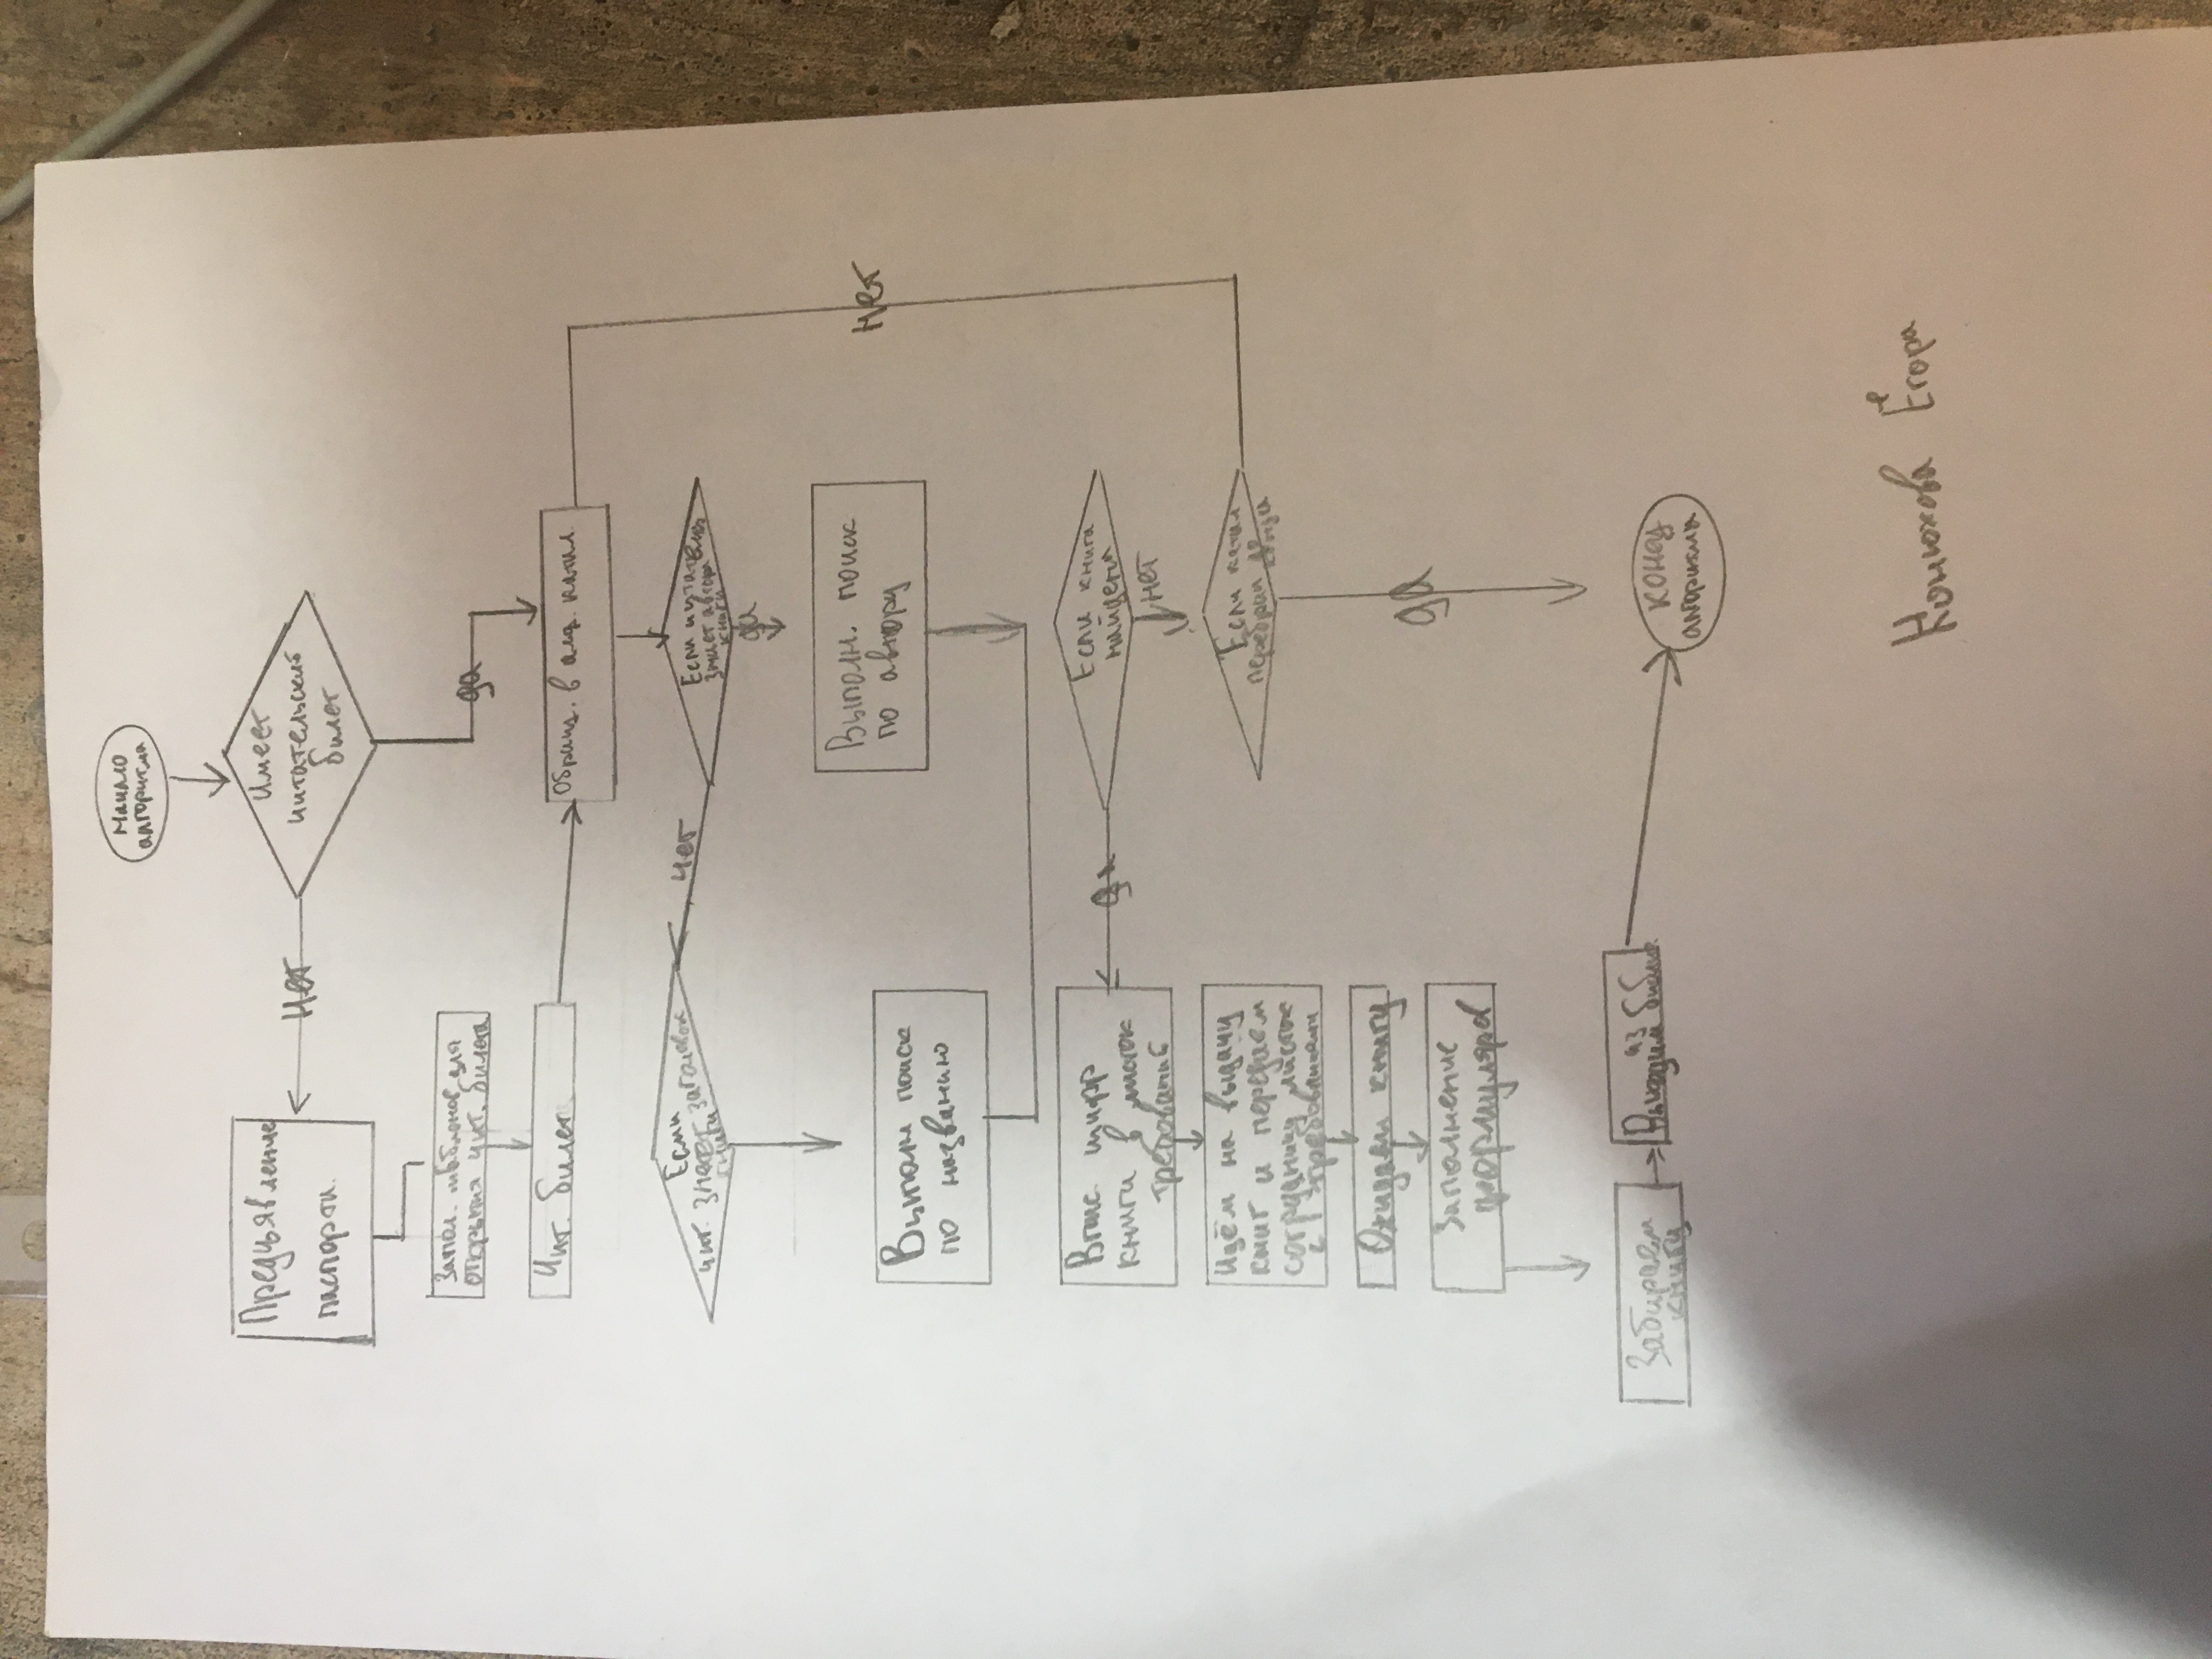 Начало
алгоритма
Имеет
читательский
билет
Нет
Предъявление
паспорта.
да
Запол. шаблонов для
открытия чит. билета
Чит. билет
Обращ. в алф. катал.
Если читатель
знает автора
книги
нет
Если
чит. знает заголовок
книги
да
Выполн. поиск
по автору
Нет
Выполн поиск
по названию
Если книга
найдена
да
Впис. шифр
книги в листок
требований
нет
Если катал
перебран до
конца
Идём на выдачу
книг и передаём
сотруднику листок
с требованиями
Ожидаем книгу
да
Заполнение
формуляров
Забираем
книгу
Выходим из библио.
конец
алгоритма
Конюхова Егора